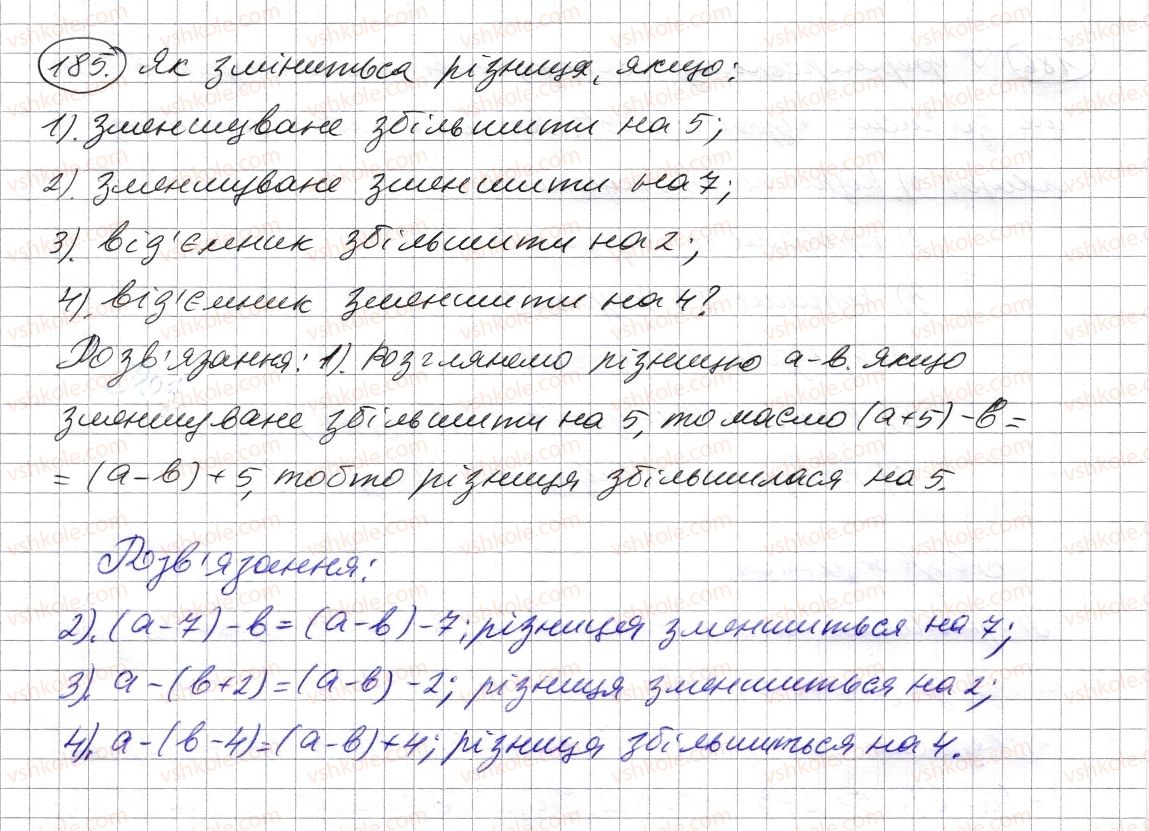 185. Як зміниться різниця, якщо:
1). зменшуване збільшити на 5;
2). зменшуване зменшити на 7;
3). від'ємник збільшити на 2;
4). від'ємник зменшити на 4?
Розв'язання: 1). Розглянемо різницю а-в. якщо
зменшуване збільшити на 5, то маємо (а+5)-в=
= (а-в)+5, тобто різниця збільшилася на 5.
Розв'язання:
2). (а-7)-в=(а-в)-7; різниця зменшиться на 7;
3). а-(в+2)=(а-в)-2; різниця зменшиться на 2;
4). а-(в-4)=(а-в)+4; різниця збільшиться на 4.